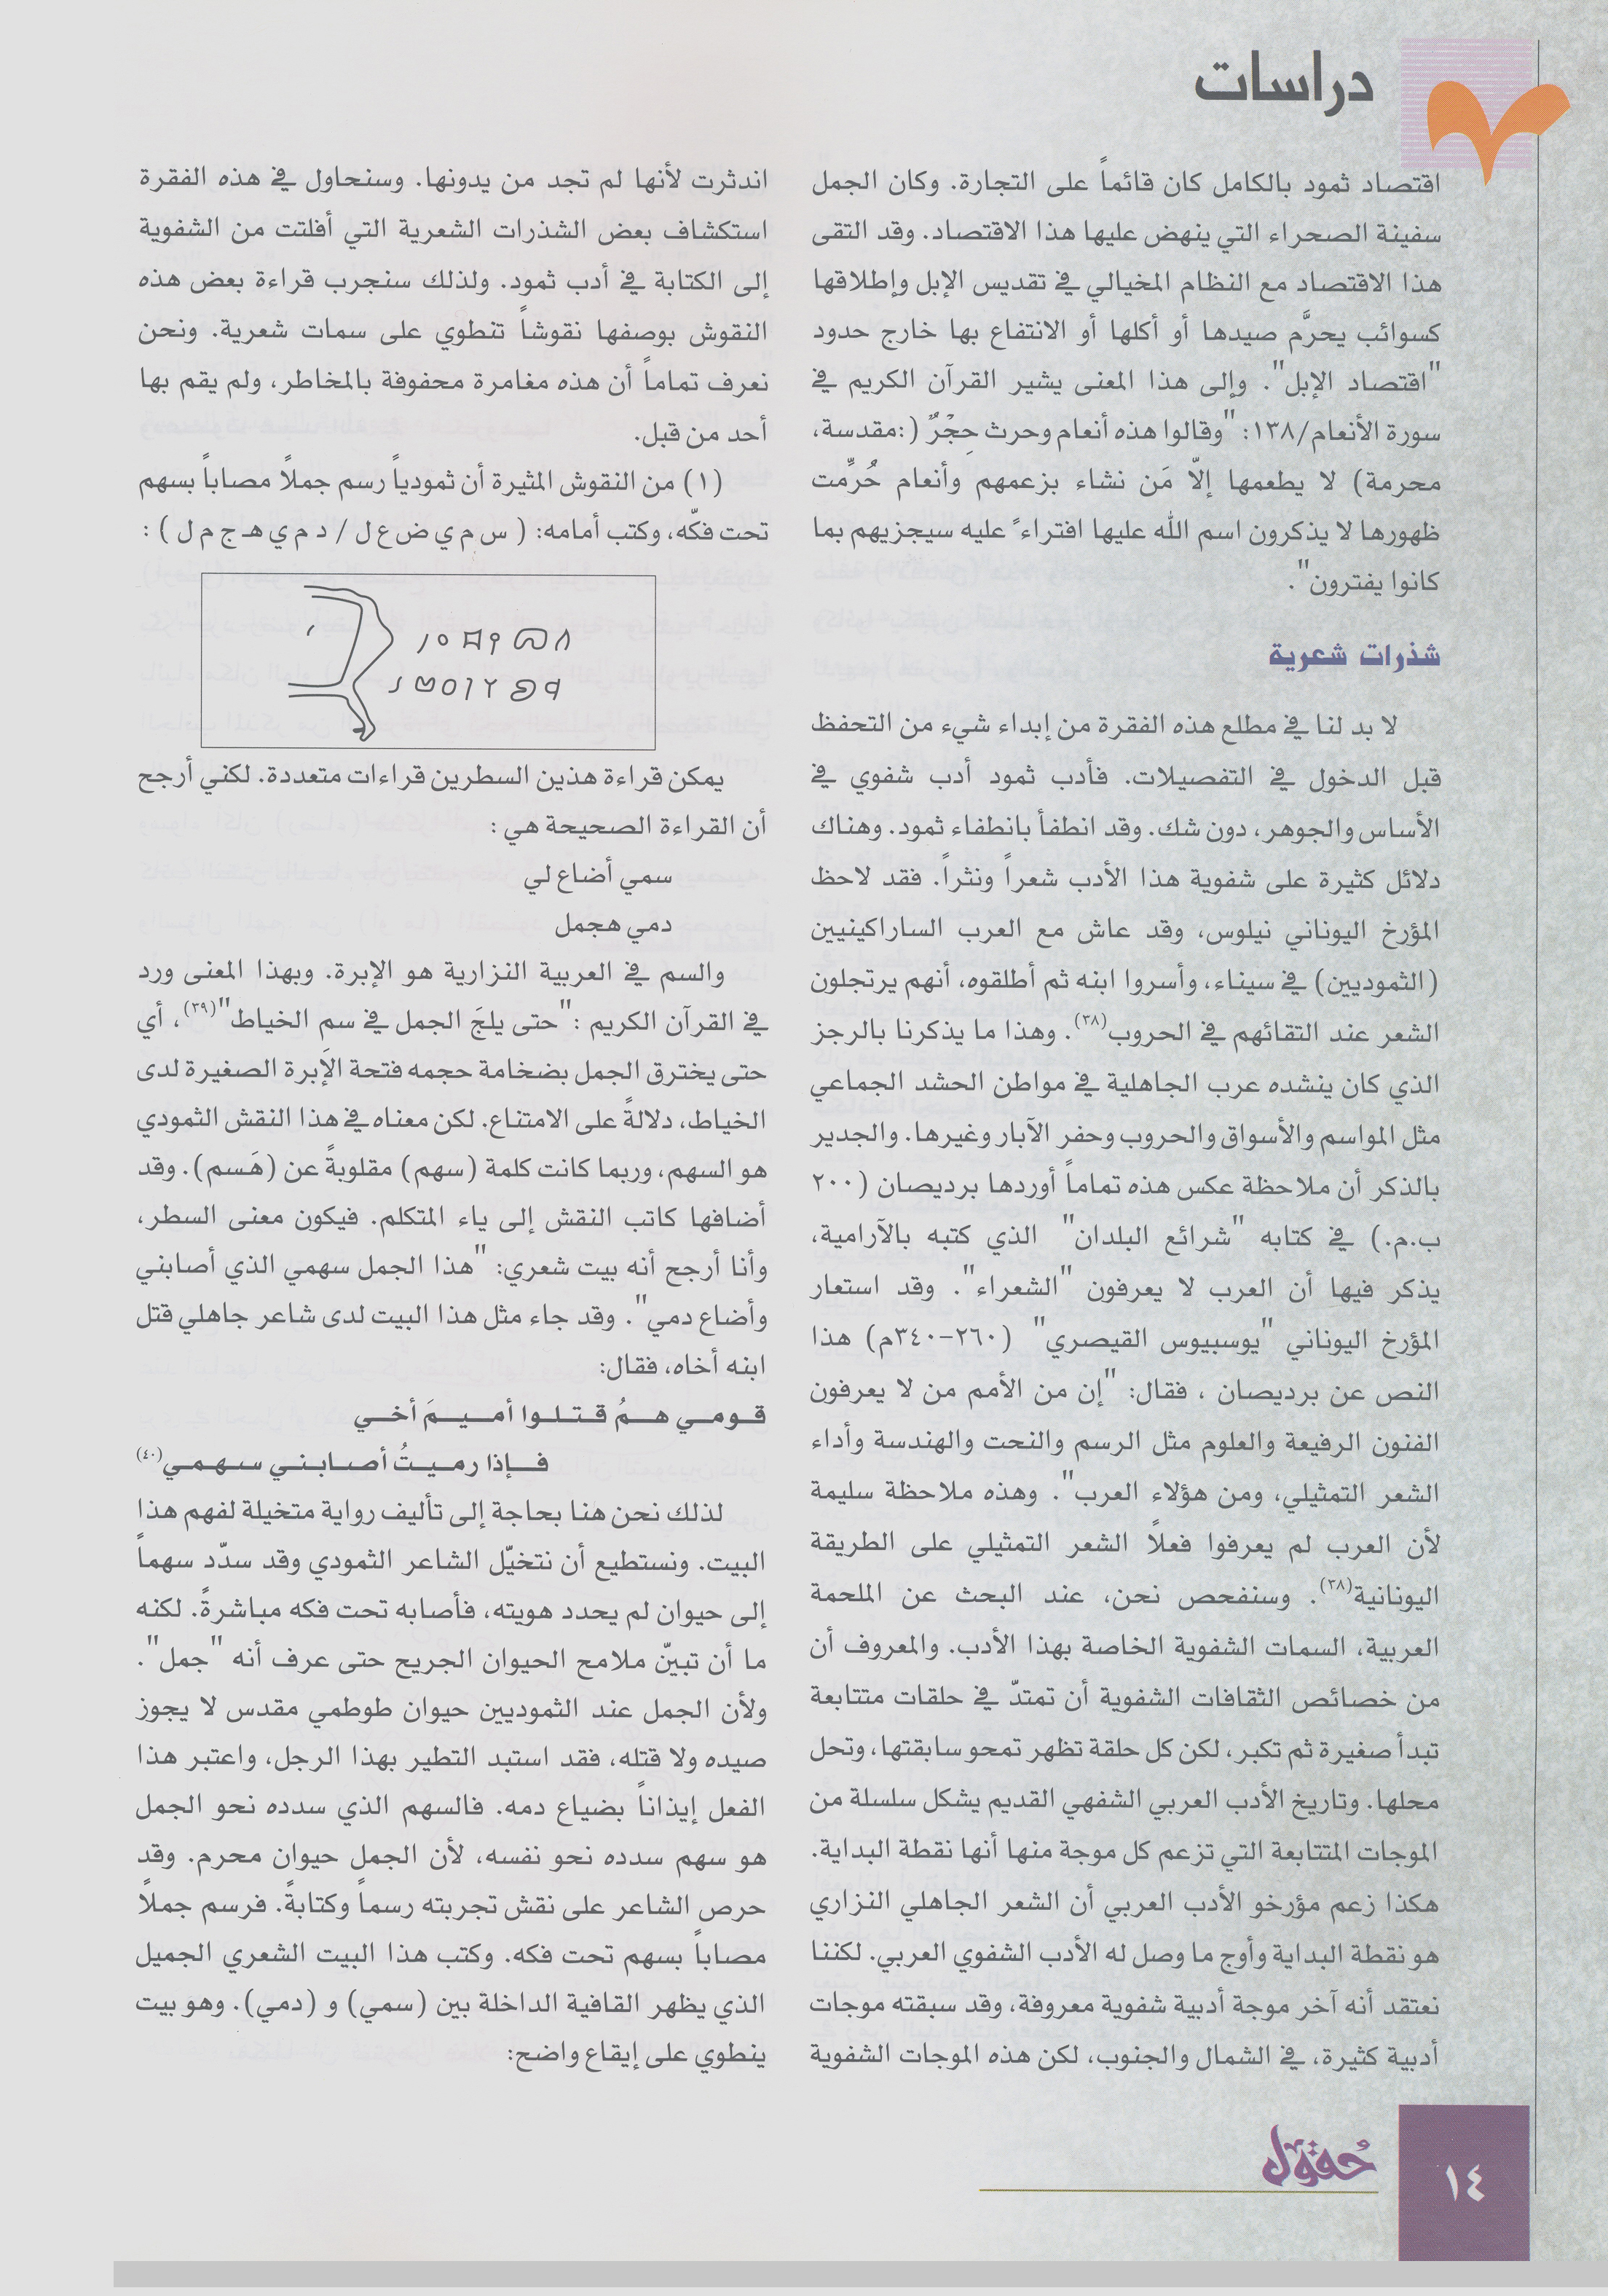 دراسات
اقتصاد ثمود بالكامل كان قائماً على التجارة. وكان الجمل
سفينة الصحراء التي ينهض عليها هذا الاقتصاد. وقد التقى
هذا الاقتصاد مع النظام المخيالي في تقديس الإبل وإطلاقها
كسوائب يحرَّم صيدها أو أكلها أو الانتفاع بها خارج حدود
"اقتصاد الإبل". وإلى هذا المعنى يشير القرآن الكريم في
سورة الأنعام/١٣٨: "وقالوا هذه أنعام وحرث حِجْرٌ (:مقدسة،
محرمة) لا يطعمها إلاّ مَن نشاء بزعمهم وأنعام حُرِّمت
ظهورها لا يذكرون اسم الله عليها افتراءً عليه سيجزيهم بما
كانوا يفترون".
شذرات شعرية
لا بد لنا في مطلع هذه الفقرة من إبداء شيء من التحفظ
قبل الدخول في التفصيلات. فأدب ثمود أدب شفوي في
الأساس والجوهر، دون شك. وقد انطفأ بانطفاء ثمود. وهناك
دلائل كثيرة على شفوية هذا الأدب شعراً ونثراً. فقد لاحظ
المؤرخ اليوناني نيلوس، وقد عاش مع العرب الساراكينيين
(الثموديين) في سيناء، وأسروا ابنه ثم أطلقوه، أنهم يرتجلون
الشعر عند التقائهم في الحروب(٣٨). وهذا ما يذكرنا بالرجز
الذي كان ينشده عرب الجاهلية في مواطن الحشد الجماعي
مثل المواسم والأسواق والحروب وحفر الآبار وغيرها. والجدير
بالذكر أن ملاحظة عكس هذه تماماً أوردها برديصان (٢٠٠
ب.م.) في كتابه "شرائع البلدان" الذي كتبه بالآرامية،
يذكر فيها أن العرب لا يعرفون "الشعراء". وقد استعار
المؤرخ اليوناني "يوسبيوس القيصري" (٢٦٠-٣٤٠م) هذا
النص عن برديصان ، فقال: "إن من الأمم من لا يعرفون
الفنون الرفيعة والعلوم مثل الرسم والنحت والهندسة وأداء
الشعر التمثيلي، ومن هؤلاء العرب". وهذه ملاحظة سليمة
لأن العرب لم يعرفوا فعلاً الشعر التمثيلي على الطريقة
اليونانية(٣٨). وسنفحص نحن، عند البحث عن الملحمة
العربية، السمات الشفوية الخاصة بهذا الأدب. والمعروف أن
من خصائص الثقافات الشفوية أن تمتدّ في حلقات متتابعة
تبدأ صغيرة ثم تكبر، لكن كل حلقة تظهر تمحو سابقتها، وتحل
محلها. وتاريخ الأدب العربي الشفهي القديم يشكل سلسلة من
الموجات المتتابعة التي تزعم كل موجة منها أنها نقطة البداية.
هكذا زعم مؤرخو الأدب العربي أن الشعر الجاهلي النزاري
هو نقطة البداية وأوج ما وصل له الأدب الشفوي العربي. لكننا
نعتقد أنه آخر موجة أدبية شفوية معروفة، وقد سبقته موجات
أدبية كثيرة، في الشمال والجنوب، لكن هذه الموجات الشفوية
اندثرت لأنها لم تجد من يدونها. وسنحاول في هذه الفقرة
استكشاف بعض الشذرات الشعرية التي أفلتت من الشفوية
إلى الكتابة في أدب ثمود. ولذلك سنجرب قراءة بعض هذه
النقوش بوصفها نقوشاً تنطوي على سمات شعرية. ونحن
نعرف تماماً أن هذه مغامرة محفوفة بالمخاطر، ولم يقم بها
أحد من قبل.
(١) من النقوش المثيرة أن ثمودياً رسم جملاً مصاباً بسهم
تحت فكّه، وكتب أمامه: ( س م ي ض ع ل / د م ي هـ ج م ل ) :
يمكن قراءة هذين السطرين قراءات متعددة. لكني أرجح
أن القراءة الصحيحة هي :
سمي أضاع لي
دمي هجمل
والسم في العربية النزارية هو الإبرة. وبهذا المعنى ورد
في القرآن الكريم :"حتى يلجَ الجمل في سم الخياط"(٣٩)، أي
حتى يخترق الجمل بضخامة حجمه فتحة الإبرة الصغيرة لدى
الخياط، دلالةً على الامتناع. لكن معناه في هذا النقش الثمودي
هو السهم، وربما كانت كلمة (سهم) مقلوبةً عن (هَسم). وقد
أضافها كاتب النقش إلى ياء المتكلم. فيكون معنى السطر،
وأنا أرجح أنه بيت شعري: "هذا الجمل سهمي الذي أصابني
وأضاع دمي". وقد جاء مثل هذا البيت لدى شاعر جاهلي قتل
ابنه أخاه، فقال:
قـومـي هـمُ قـتـلـوا أمـيـمَ أخـي
فـإذا رمـيـتُ أصـابـنـي سـهـمـي(٤٠)
لذلك نحن هنا بحاجة إلى تأليف رواية متخيلة لفهم هذا
البيت. ونستطيع أن نتخيّل الشاعر الثمودي وقد سدّد سهماً
إلى حيوان لم يحدد هويته، فأصابه تحت فكه مباشرةً. لكنه
ما أن تبيّن ملامح الحيوان الجريح حتى عرف أنه "جمل".
ولأن الجمل عند الثموديين حيوان طوطمي مقدس لا يجوز
صيده ولا قتله، فقد استبد التطير بهذا الرجل، واعتبر هذا
الفعل إيذاناً بضياع دمه. فالسهم الذي سدده نحو الجمل
هو سهم سدده نحو نفسه، لأن الجمل حيوان محرم. وقد
حرص الشاعر على نقش تجربته رسماً وكتابةً. فرسم جملاً
مصاباً بسهم تحت فكه. وكتب هذا البيت الشعري الجميل
الذي يظهر القافية الداخلة بين (سمي) و (دمي). وهو بيت
ينطوي على إيقاع واضح:
حُقول
١٤